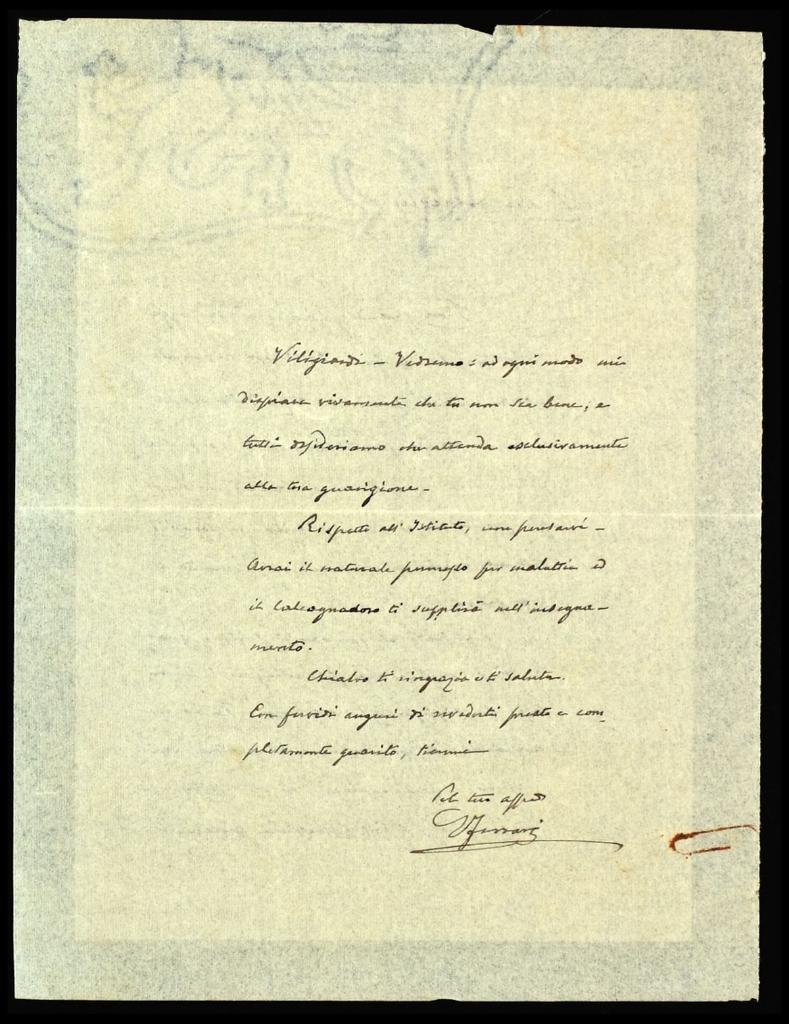 Viligiardi – Vedremo: ad ogni modo mi
dispiace vivamente che tu non sia bene; e
tutti desideriamo che attenda esclusivamente
alla tua guarigione –
Rispetto all' Istituto, non pensarvi –
Avrai il naturale permesso per malattia ed
il Calcagnadoro ti supplirà nell' insegna–
mento.
ti ringrazia e ti saluta.
Con fervidi auguri di rivederti presto e com–
pletamente guarito, tienmi
Pel tuo affmo
Ferrari